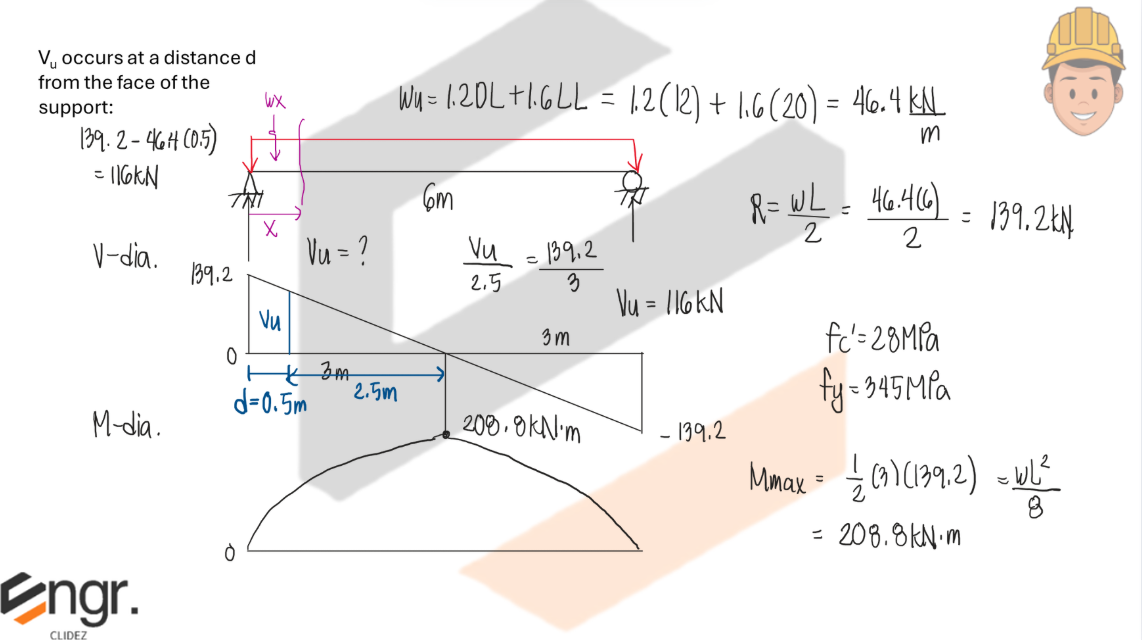 Vu occurs at a distance d
from the face of the
support:
139.2 - 46.4(0.5)
= 116kN
Wu = 1.2DL + 1.6LL = 1.2(12) + 1.6(20) = 46.4 kN/m
wx
6m
x
R = wL/2 = 46.4(6)/2 = 139.2kN
V-dia.
Vu = ?
Vu/2.5 = 139.2/3
Vu = 116kN
139.2
Vu
0
3m
3m
d=0.5m
2.5m
-139.2
fc' = 28MPa
fy = 345MPa
M-dia.
208.8kN·m
0
Mmax = 1/2 (3)(139.2) = wL²/8
= 208.8kN·m
Engr.
CLIDEZ